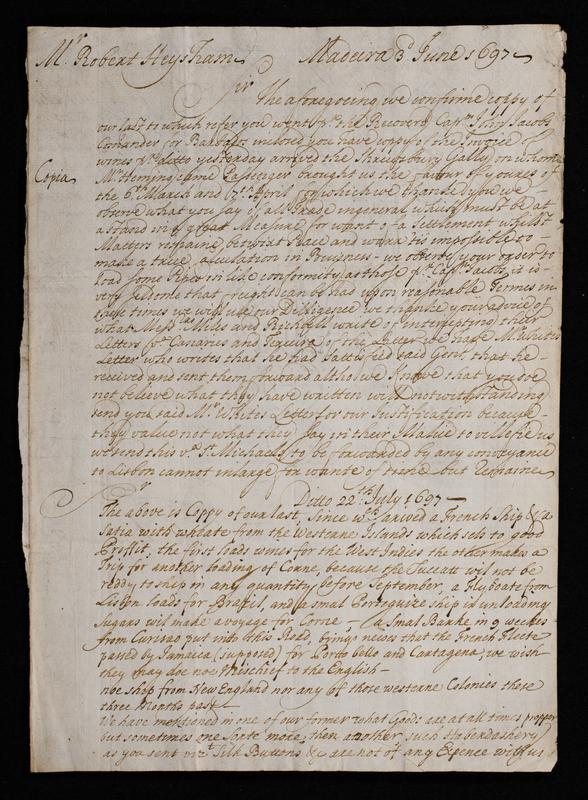 Mr Robert Heysham Madeira 3d June 1697
Sir
The aforegoeing we confirme coppy of
our last to which refer you went pr the Recovery Capn John Jacobs
Comander for Barbados inclosed you have coppy of the Invoice of
wines pr ditto yesterday arrived the Shrewsbury Gally on whom
Copia
Mr Heming came Passenger brought us the favour of youres of
the 6th March and 17th Aprill for which we thanke you we
observe what you say of all trade in generall which must be at
a stand in a great Measure for want of a Settlement whilst
Matters remaine betwixt Peace and warr tis impossible to
make a true calculation in Bussiness - we observe your order to
Load some Pipes in like conformity as those pr Capn Jacobs, it is
very seldome that freight can be had upon reasonable termes in
these times we will use our Dilligence we thanke your advice of
what Messrs Miles and Richolls write of intercepting their
Letters pr Canaries and of the Latter we have Mr Whites
Letter who writes that he had sattisfied said Gent that he
received and sent them forward altho we Know that you doe
not believe what they have written will notwithstanding
send you said Mr Whites Letter for our Justification because
they value not what they say in their Malice to villefie us
we send this pr St Michaels to be forwarded by any conveyance
to Lisbon cannot inlarge for wante of time but Remaine
Sr
Ditto 22th July 1697
The above is Coppy of our last, Since wch arived a French ship & a
Satia with wheate from the Westerne Islands which sels to good
Proffit, the first loads wines for the West Indies the other makes a
Trip for another loading of Corne, because the will not be
reddy to ship in any quantity before September, a Flyboate from
Lisbon loads for Brazil, and a smal Portoguize ship in unloading
Sugars wil make a voyage for Corne - a Smal Barke in 9 weekes
from Curisao put into this Road, brings newes that the French Fleete
passed by Jamaica (supposed) for Porto Cello and Cartagena; we wish
they may doe noe Mischief to the English -
noe ship from New England nor any of those westerne Colonies these
three Months past
We have mentioned in one of our former what Goods are at all times propper
but sometimes one Sorte more then another, such Haberdashery
as you sent vizt Silk Buttons &c are not of any Expence with us